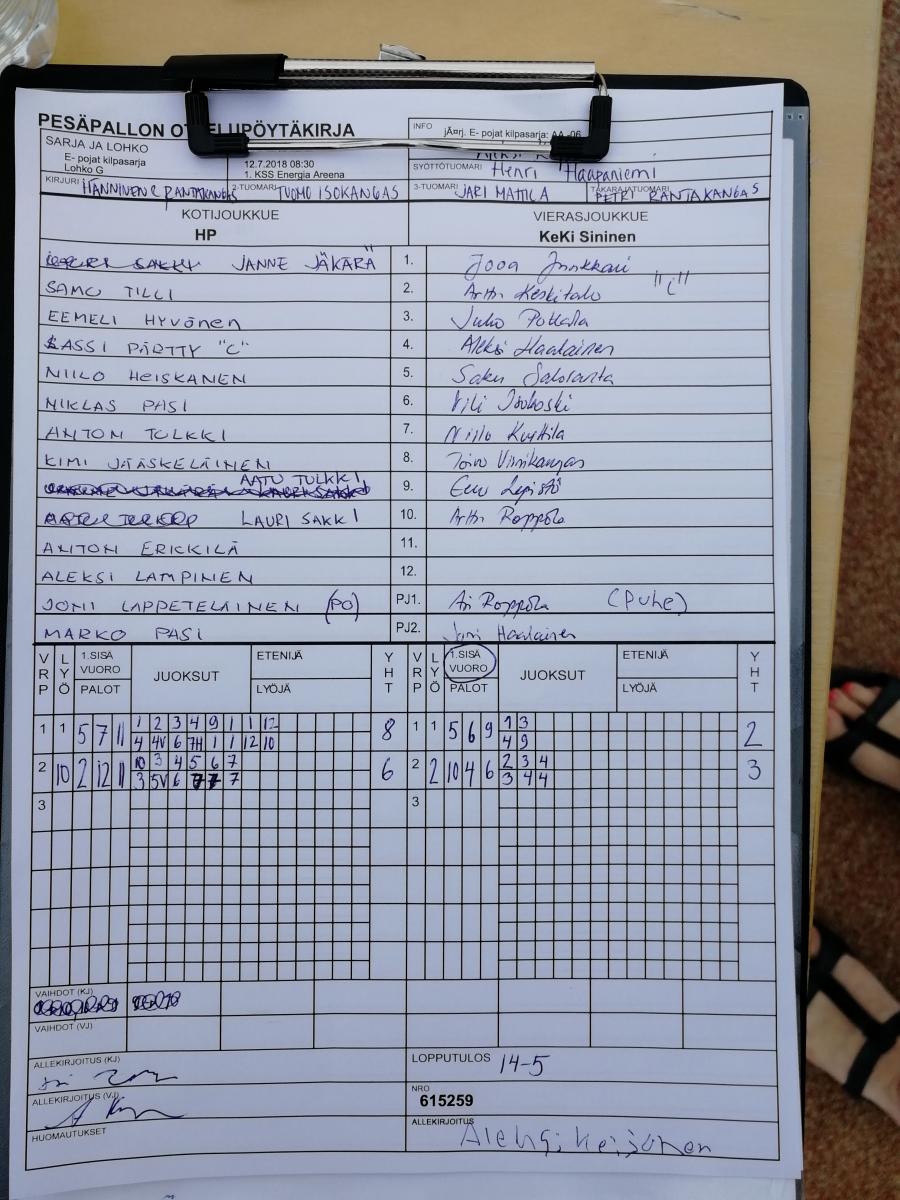 PESÄPALLON OTTELUPÖYTÄKIRJA
INFO jÄ¤rj. E- pojat kilpasarja: AA -06
SARJA JA LOHKO
E- pojat kilpasarja
Lohko G
12.7.2018 08:30
1. KSS Energia Areena
SYÖTTÖTUOMARI Henri Haapaniemi
KIRJURI HÄNNINEN & RANTAKANGAS 2-TUOMARI TUOMO ISOKANGAS 3-TUOMARI JARI MATTILA TAKARAJATUOMARI PETRI RANTAKANGAS
KOTIJOUKKUE VIERASJOUKKUE
HP KeKi Sininen
JANNE JÄKÄRÄ 1. Jooa Junkkari
SAMU TILLI 2. Artturi Keskitalo "C"
EEMELI HYVÖNEN 3. Juho Pottala
LASSI PÄRTTY "C" 4. Aleksi Haalainen
NIILO HEISKANEN 5. Saku Saloranta
NIKLAS PASI 6. Vili Isokoski
ANTON TULKKI 7. Niilo Kurttila
KIMI JÄÄSKELÄINEN 8. Toivo Viinikangas
AATU TULKKI 9. Eero Lepistö
LAURI SAKKI 10. Artturi Roppola
ANTON ERKKILÄ 11.
ALEKSI LAMPINEN 12.
JONI LAPPETELÄINEN (PO) PJ1. Ari Roppola (Puhe)
MARKO PASI PJ2. Jani Haalainen
VRP LYÖ 1.SISÄ VUORO PALOT JUOKSUT ETENIJÄ LYÖJÄ YHT VRP LYÖ 1.SISÄ VUORO PALOT JUOKSUT ETENIJÄ LYÖJÄ YHT
1 1 5 7 11 1 2 3 4 9 1 1 12 8 1 1 5 6 9 1 3 2
4 4V 6 7H 1 1 12 10 4 9
2 10 2 12 11 10 3 4 5 6 7 6 2 2 10 4 6 2 3 4 3
3 5V 6 7 7 7 3 4 4
3 3
VAIHDOT (KJ)
VAIHDOT (VJ)
ALLEKIRJOITUS (KJ) LOPPUTULOS 14-5
ALLEKIRJOITUS (VJ) NRO 615259
HUOMAUTUKSET ALLEKIRJOITUS Aleksi Keisonen